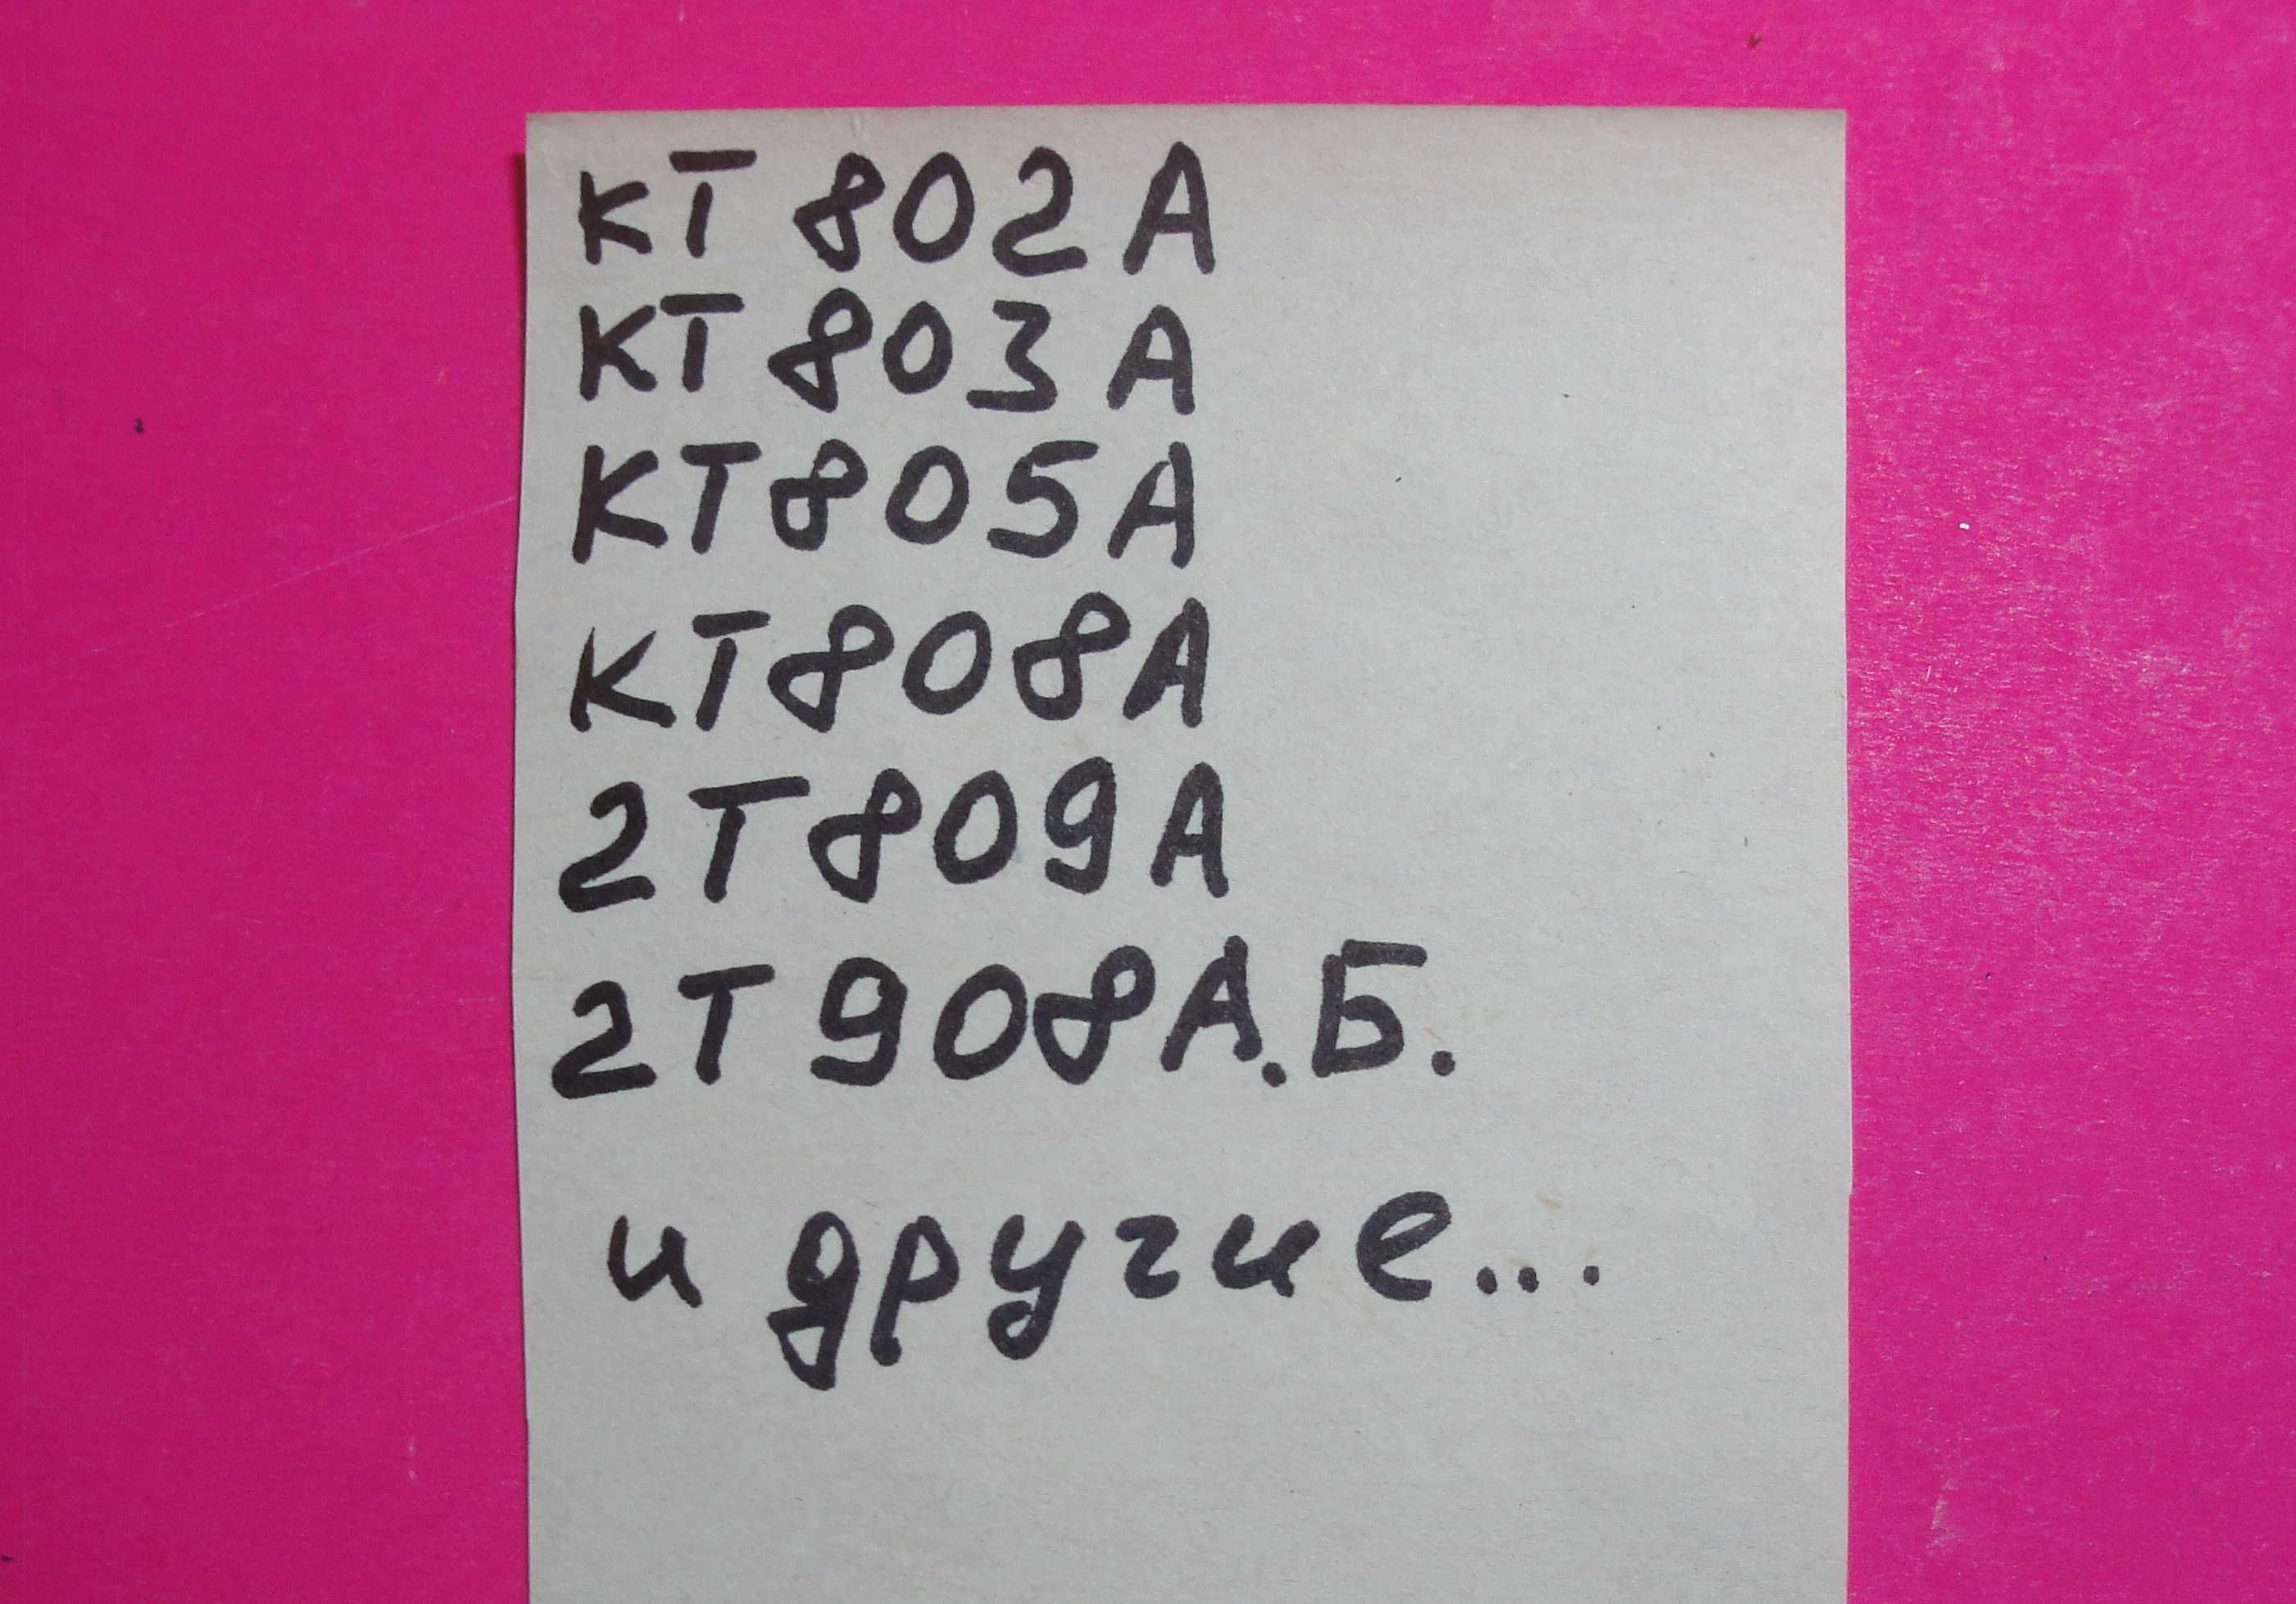 КТ 802А
КТ 803А
КТ805А
КТ808А
2Т809А
2Т908А.Б.
и другие...